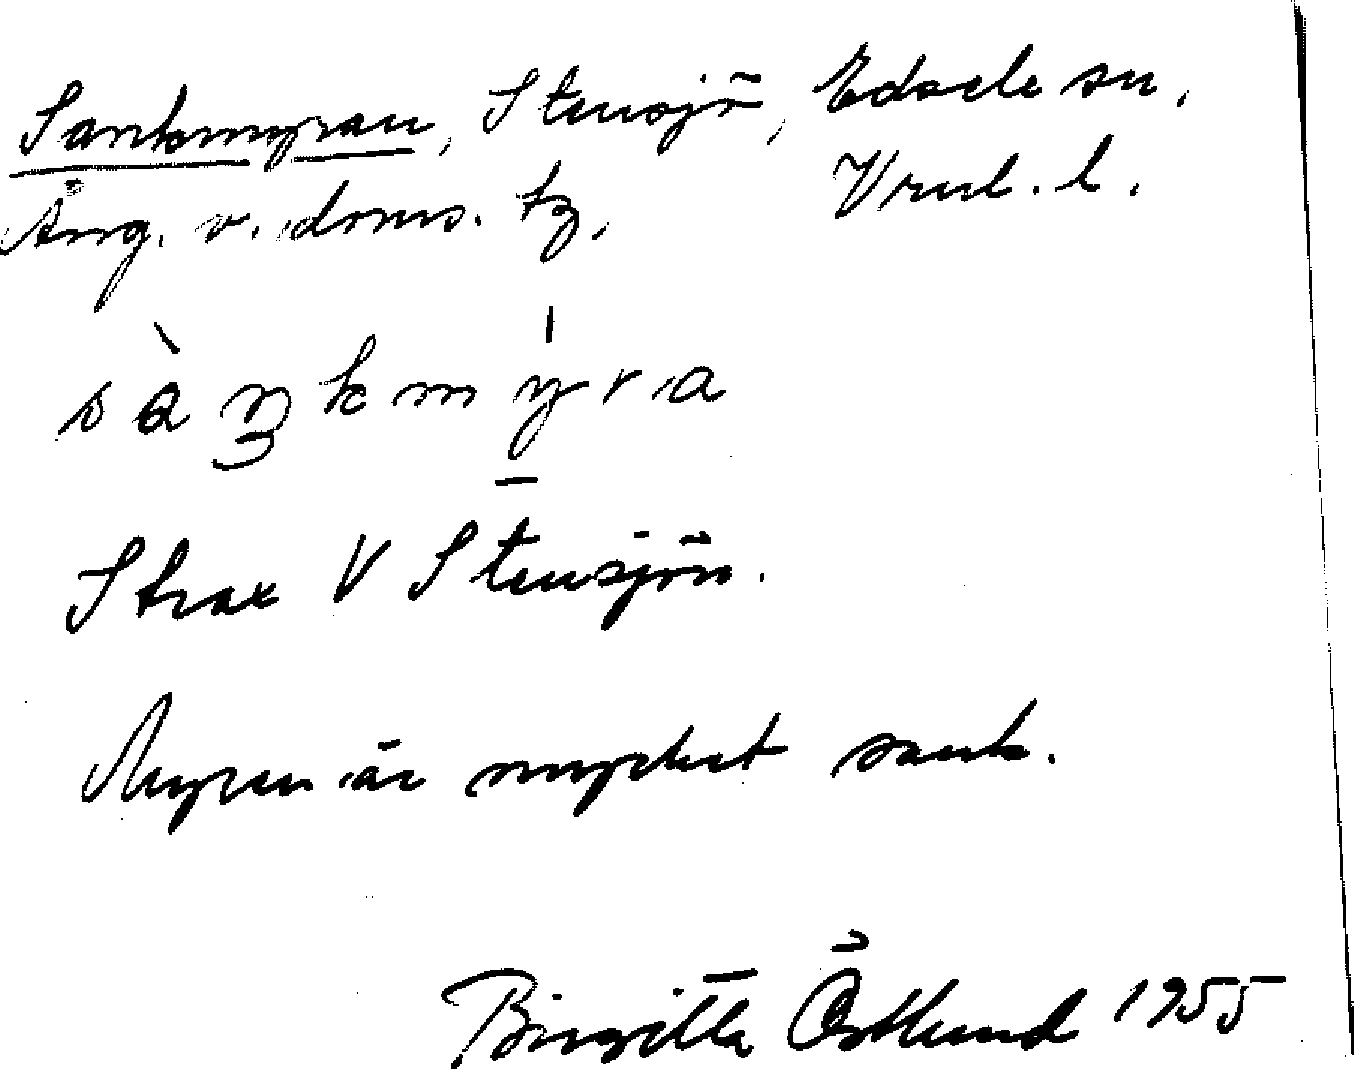 Sankmyran, Stensjö, Edsele sn,
Ång. v. doms. tg, Vrnl. l.
sàŋkmýra
Strax V Stensjön.
Myren är mycket sank.
Birgitta Östlund 1955